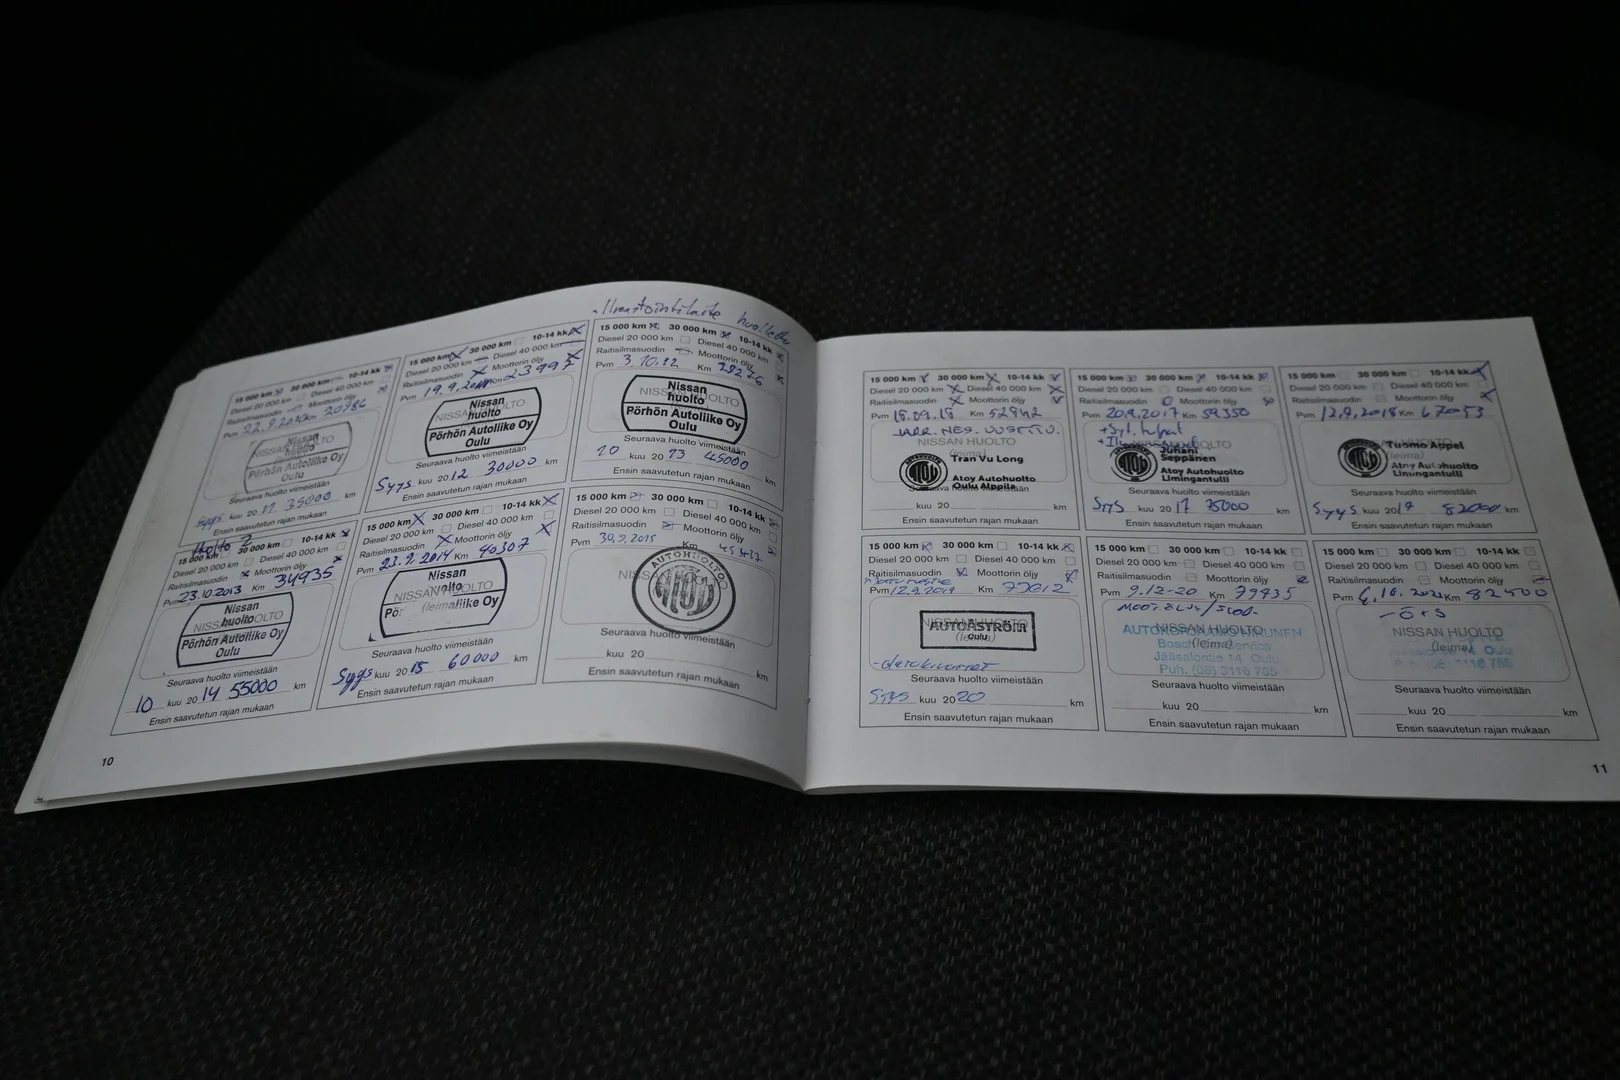 Ilmastointilaite huollettu
15 000 km 30 000 km 10-14 kk
Diesel 20 000 km Diesel 40 000 km
Raitisilmasuodin Moottorin öljy
Pvm 22.9.2010 Km 20986
NISSAN HUOLTO
Nissan
huolto
Pörhön Autoliike Oy
Oulu
Seuraava huolto viimeistään
Syys kuu 20 11 35000 km
Ensin saavutetun rajan mukaan
15 000 km 30 000 km 10-14 kk
Diesel 20 000 km Diesel 40 000 km
Raitisilmasuodin Moottorin öljy
Pvm 19.9.2011 Km 23997
NISSAN HUOLTO
Nissan
huolto
Pörhön Autoliike Oy
Oulu
Seuraava huolto viimeistään
Syys kuu 20 12 30000 km
Ensin saavutetun rajan mukaan
15 000 km 30 000 km 10-14 kk
Diesel 20 000 km Diesel 40 000 km
Raitisilmasuodin Moottorin öljy
Pvm 3.10.12 Km 29276
NISSAN HUOLTO
Nissan
huolto
Pörhön Autoliike Oy
Oulu
Seuraava huolto viimeistään
10 kuu 20 13 45000 km
Ensin saavutetun rajan mukaan
15 000 km 30 000 km 10-14 kk
Diesel 20 000 km Diesel 40 000 km
Raitisilmasuodin Moottorin öljy
Pvm 23.10.2013 Km 34935
NISSAN HUOLTO
Nissan
huolto
Pörhön Autoliike Oy
Oulu
Seuraava huolto viimeistään
10 kuu 20 14 55000 km
Ensin saavutetun rajan mukaan
15 000 km 30 000 km 10-14 kk
Diesel 20 000 km Diesel 40 000 km
Raitisilmasuodin Moottorin öljy
Pvm 23.9.2014 Km 40307
NISSAN HUOLTO
(leima)
Nissan
huolto
Seuraava huolto viimeistään
Syys kuu 20 15 60000 km
Ensin saavutetun rajan mukaan
15 000 km 30 000 km 10-14 kk
Diesel 20 000 km Diesel 40 000 km
Raitisilmasuodin Moottorin öljy
Pvm 30.9.2015 Km 45437
AUTOHUOLTO
ATOY
Seuraava huolto viimeistään
kuu 20 km
Ensin saavutetun rajan mukaan
10
15 000 km 30 000 km 10-14 kk
Diesel 20 000 km Diesel 40 000 km
Raitisilmasuodin Moottorin öljy
Pvm Km 52942
JARR. NES. UUSITTU.
NISSAN HUOLTO
(leima)
Tran Vu Long
Atoy Autohuolto
Oulu Alppila
Seuraava huolto viimeistään
kuu 20 km
Ensin saavutetun rajan mukaan
15 000 km 30 000 km 10-14 kk
Diesel 20 000 km Diesel 40 000 km
Raitisilmasuodin Moottorin öljy
Pvm 20.9.2017 Km 59350
+ Syt. tulpat
NISSAN HUOLTO
Juhani
Seppänen
Atoy Autohuolto
Limingantulli
Seuraava huolto viimeistään
Syys kuu 20 17 75000 km
Ensin saavutetun rajan mukaan
15 000 km 30 000 km 10-14 kk
Diesel 20 000 km Diesel 40 000 km
Raitisilmasuodin Moottorin öljy
Pvm 12.9.2018 Km 67053
NISSAN HUOLTO
(leima)
Tuomo Appel
Atoy Autohuolto
Limingantulli
Seuraava huolto viimeistään
Syys kuu 20 19 82000 km
Ensin saavutetun rajan mukaan
15 000 km 30 000 km 10-14 kk
Diesel 20 000 km Diesel 40 000 km
Raitisilmasuodin Moottorin öljy
Pvm 12.9.2019 Km 73012
NISSAN HUOLTO
(leima)
AUTOÅSTRÖM
Oulu
Seuraava huolto viimeistään
Syys kuu 20 20 km
Ensin saavutetun rajan mukaan
15 000 km 30 000 km 10-14 kk
Diesel 20 000 km Diesel 40 000 km
Raitisilmasuodin Moottorin öljy
Pvm 9.12-20 Km 79435
NISSAN HUOLTO
(leima)
AUTOKORJAAMO NIKUNEN
Bosch Car Service
Jääsalontie 14 Oulu
Puh. (08) 3116 765
Seuraava huolto viimeistään
kuu 20 km
Ensin saavutetun rajan mukaan
15 000 km 30 000 km 10-14 kk
Diesel 20 000 km Diesel 40 000 km
Raitisilmasuodin Moottorin öljy
Pvm 6.10.2021 Km 82500
- Ö + S
NISSAN HUOLTO
(leima)
Seuraava huolto viimeistään
kuu 20 km
Ensin saavutetun rajan mukaan
11